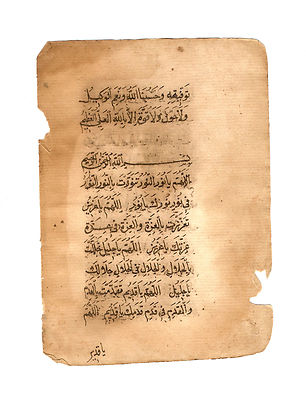 توفيقه وحسبنا الله ونعم الوكيل
ولا حول ولا قوة الا بالله العلي العظيم
بسم الله الرحمن الرحيم
اللهم يا نور النور تنورت بالنور والنور
في نور نورك يا نور اللهم يا عزيز
تعززت بالعزة والعزة في عزة
عزتك يا عزيز اللهم يا جليل تجللت
بالجلال والجلال في جلال جلالك
يا جليل اللهم يا قديم تقدمت بالقدم
والقدم في قدم قدمك يا قديم اللهم
يا قدير